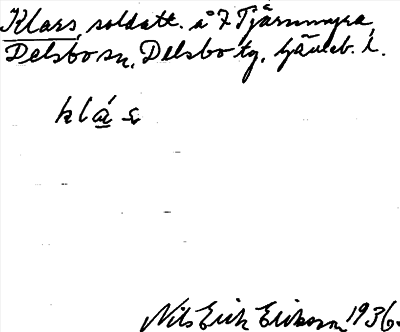 Klars, soldatt. å 7 Tjärnmyra,
Delsbo sn, Delsbo tg, Gävleb. l.
klá s
Nils Erik Eriksson 1936.